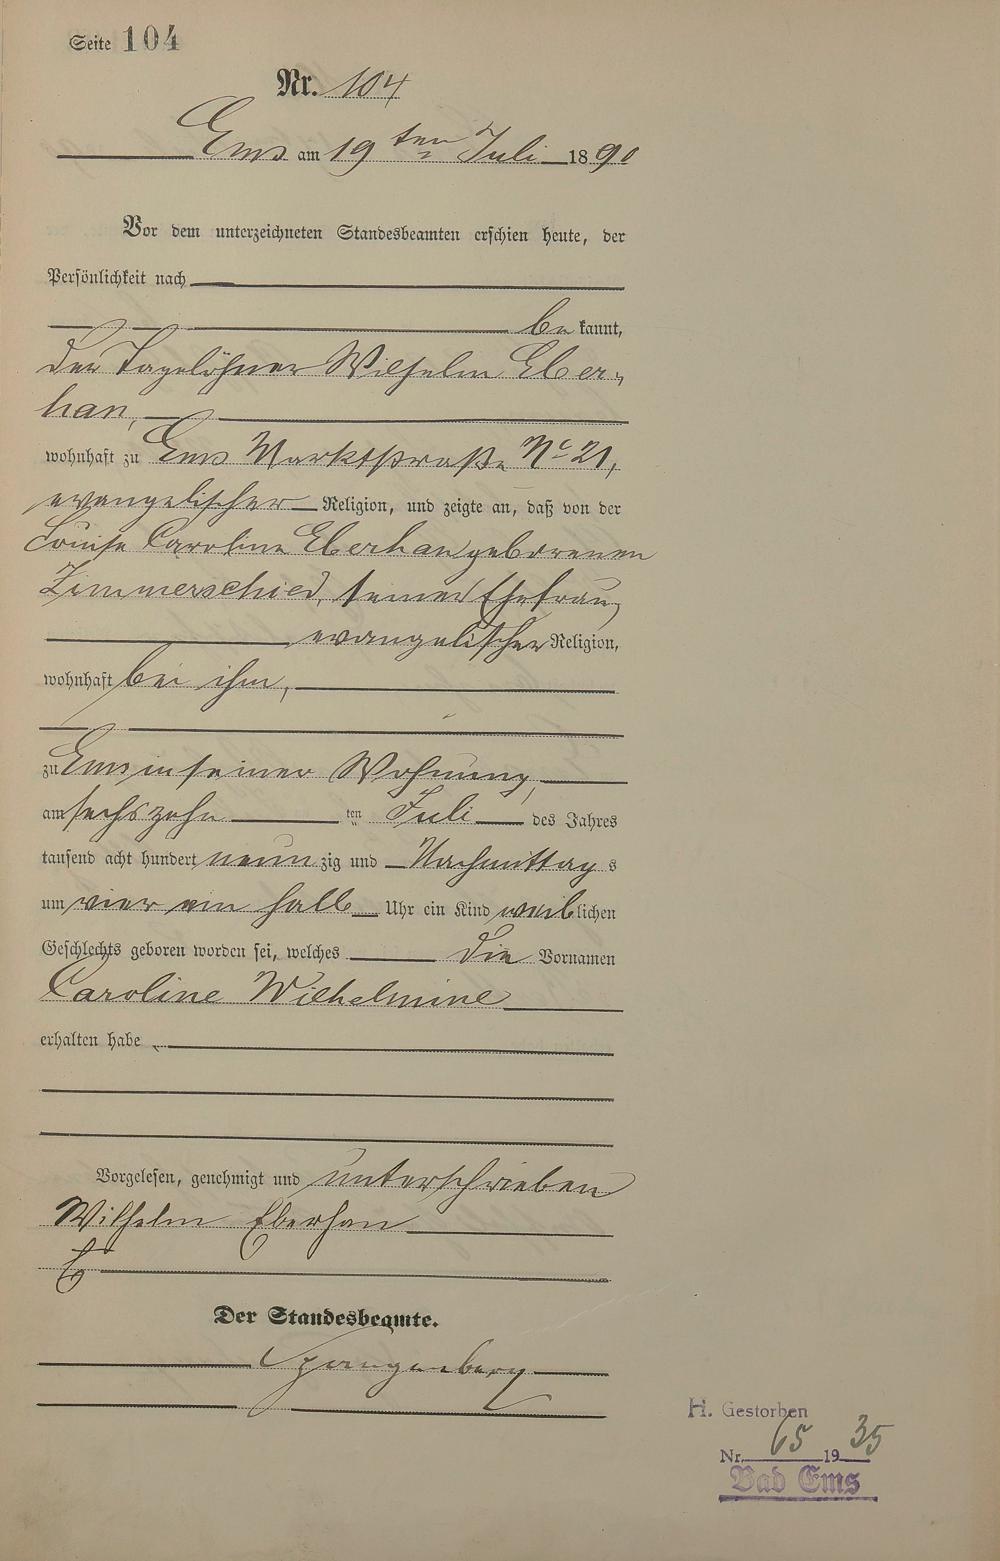 Seite 104
Nr. 104
Ems am 19ten Juli 1890
Vor dem unterzeichneten Standesbeamten erschien heute, der
Persönlichkeit nach
be kannt,
der Tagelöhner Wilhelm Eber-
han,
wohnhaft zu Ems Marktstraße No 21,
evangelischer Religion, und zeigte an, daß von der
Louise Caroline Eberhan geborenen
Zimmerschied, seiner Ehefrau,
evangelischer Religion,
wohnhaft bei ihm,
zu Ems in seiner Wohnung,
am sechszehn ten Juli des Jahres
tausend acht hundert neun zig und Nachmittag s
um vier ein halb Uhr ein Kind weib lichen
Geschlechts geboren worden sei, welches die Vornamen
Caroline Wilhelmine
erhalten habe
Vorgelesen, genehmigt und unterschrieben
Wilhelm Eberhan
Der Standesbeamte.
Spangenberg
H. Gestorben
Nr. 65 1935
Bad Ems